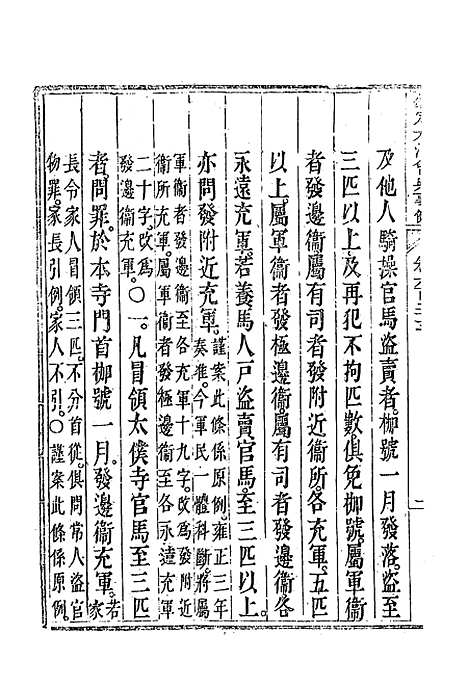 及他人騎操官馬盜賣者。枷號一月發落。盜至
三匹以上。及再犯不拘匹數。俱免枷號。屬軍衞
者發邊衞。屬有司者發附近衞所。各充軍。五匹
以上。屬軍衞者發極邊衞。屬有司者發邊衞。各
永遠充軍。若養馬人戶盜賣官馬。至三匹以上。
亦問發附近充軍。謹案此條係原例。雍正三年
奏准。今軍民一體科斷。將屬
軍衞者發邊衞至各充軍十九字。改爲發附近
衞所充軍。屬軍衞者發極邊衞至各永遠充軍
二十字。改爲
發邊衞充軍。〇一。凡冒領太僕寺官馬至三匹
者。問罪。於本寺門首枷號一月。發邊衞充軍。若家
長令家人冒領三匹。不分首從。俱問常人盜官
物罪。家長引例。家人不引。〇謹案此條係原例。